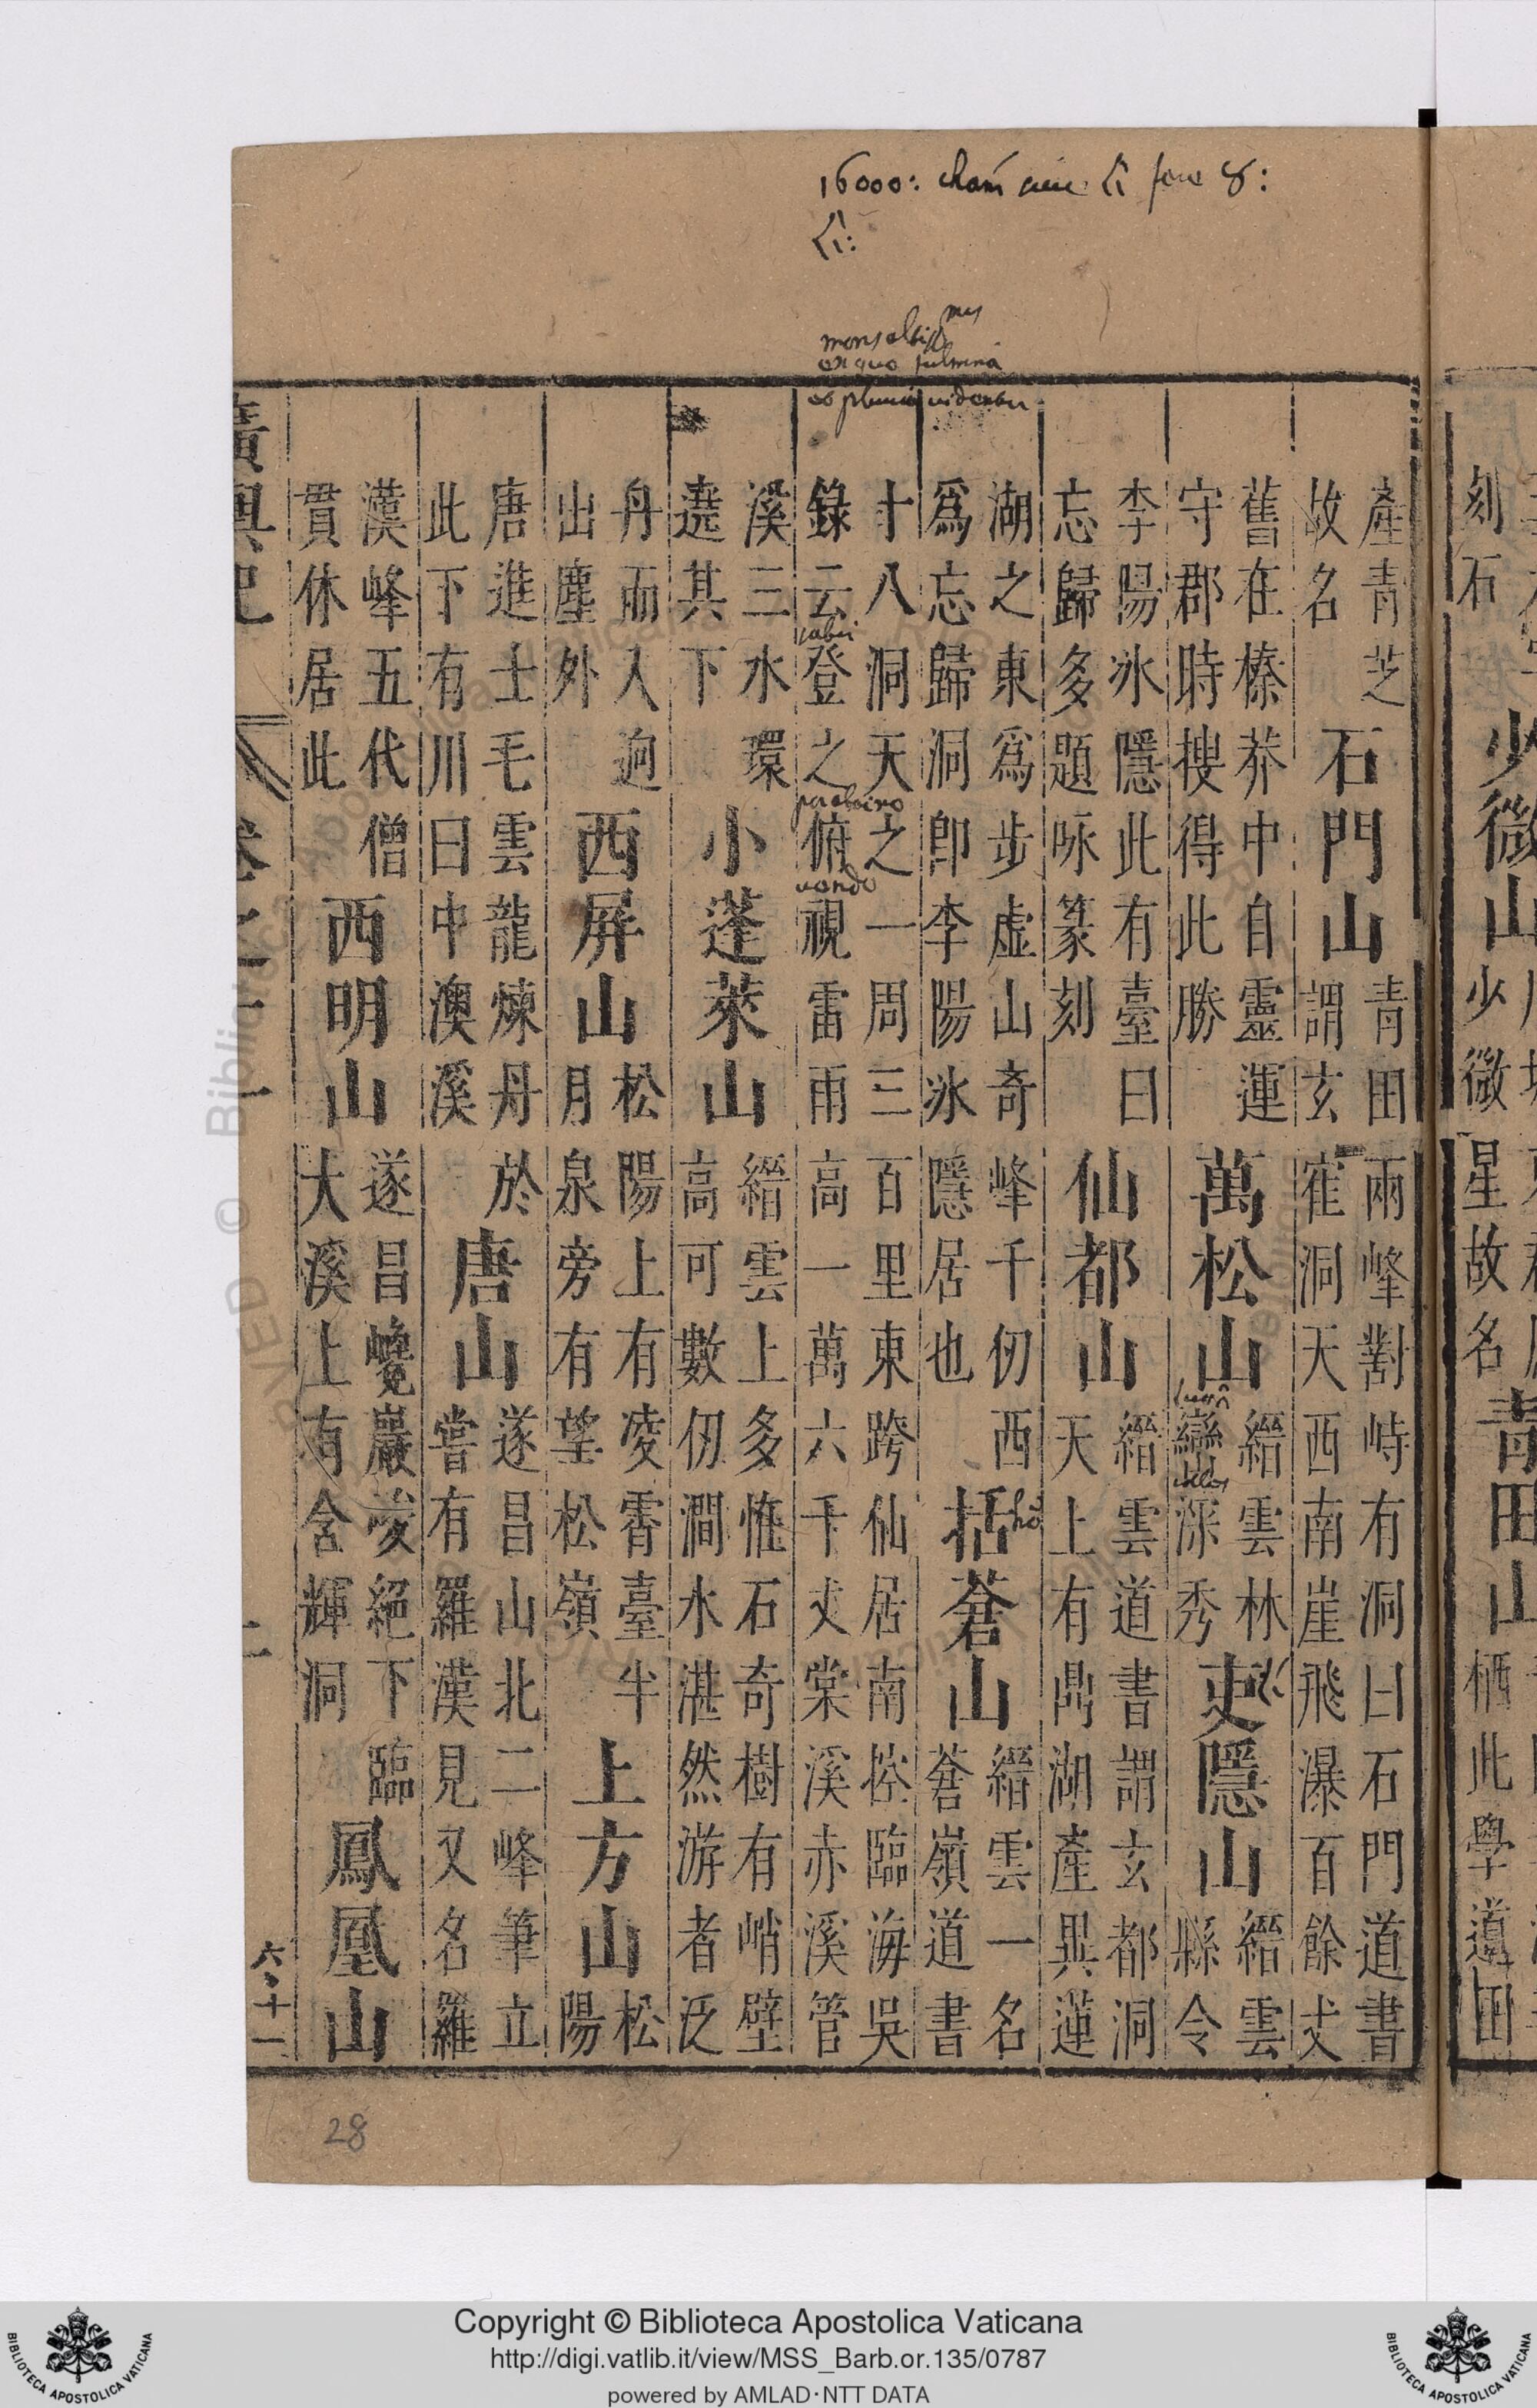 16000: cham
mons altiss mus
ex quo fulmina
videntur
刻石
少微山
少微星故名
青田山
栖此學道田
產青芝
故名
石門山
青田兩峰對峙有洞曰石門道書
謂玄寉洞天西南崖飛瀑百餘丈
舊在榛莽中自靈運
守郡時搜得此勝
萬松山
縉雲林
巒深秀
吏隱山
縉雲
縣令
李陽冰隱此有臺曰
忘歸多題咏篆刻
仙都山
縉雲道書謂玄都洞
天上有鼎湖產異蓮
湖之東爲步虛山奇峰千仞西
爲忘歸洞卽李陽冰隱居也
括蒼山
縉雲一名
蒼嶺道書
十八洞天之一周三百里東跨仙居南控臨海吳
錄云登之俯視雷雨高一萬六千丈棠溪赤溪管
溪三水環
遶其下
小蓬萊山
縉雲上多惟石奇樹有峭壁
高可數仞澗水湛然游者泛
丹而入逈
出塵外
西屏山
松陽上有凌霄臺半
月泉旁有望松嶺
上方山
松
陽
唐進士毛雲龍煉丹於
此下有川曰中澳溪
唐山
遂昌山北二峰筆立
嘗有羅漢見又名羅
漢峰五代僧
貫休居此
西明山
遂昌巉巖峻絕下臨
大溪上有含輝洞
鳳凰山
廣輿記
卷之十一
二
六、十一
28
Copyright © Biblioteca Apostolica Vaticana
http://digi.vatlib.it/view/MSS_Barb.or.135/0787
powered by AMLAD·NTT DATA
BIBLIOTECA APOSTOLICA VATICANA
BIBLIOTECA APOSTOLICA VATICANA